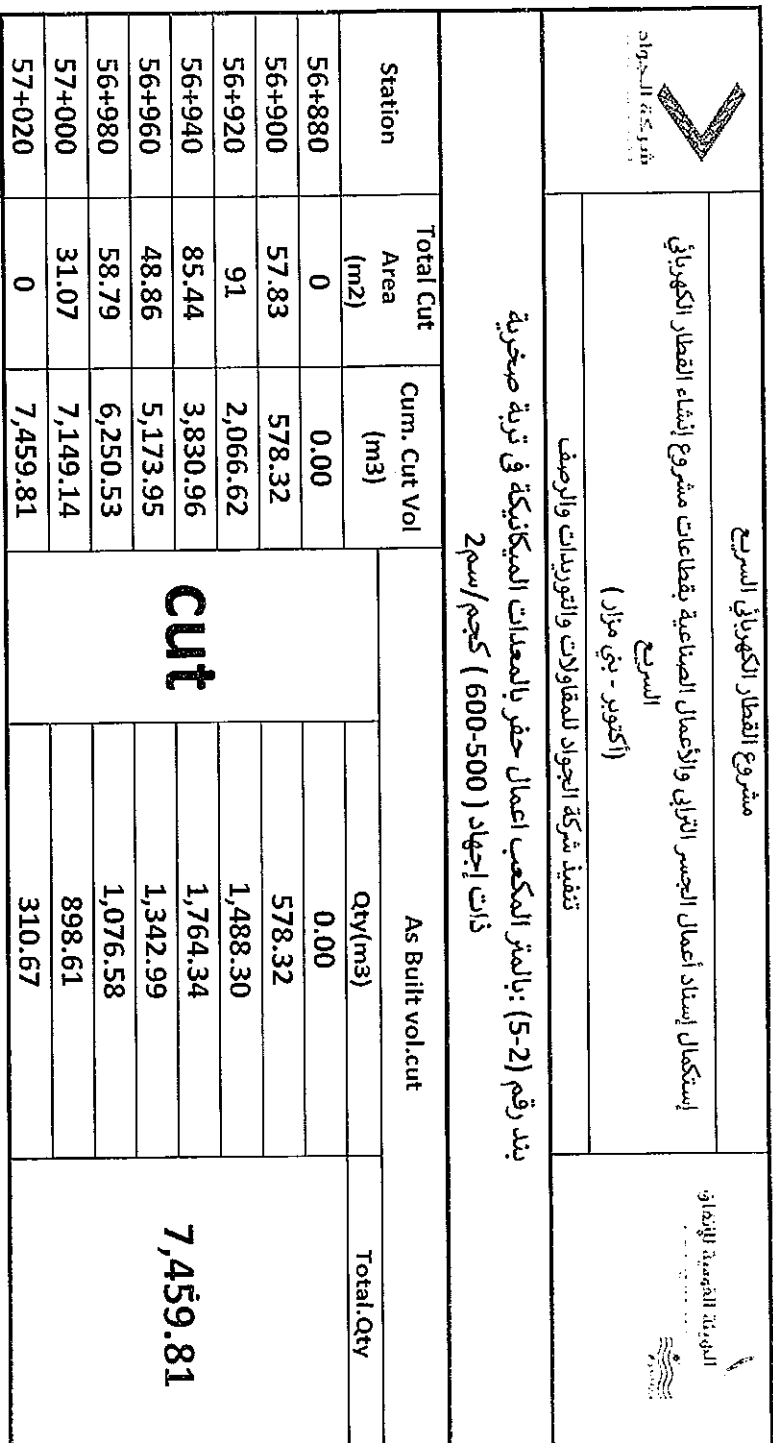 مشروع القطار الكهربائي السريع
شركة الجواد
إستكمال إسناد أعمال الجسر الترابي والأعمال الصناعية بقطاعات مشروع إنشاء القطار الكهربائي
السريع
(أكتوبر - بني مزار)
الهيئة القومية للإنفاق
تنفيذ شركة الجواد للمقاولات والتوريدات والرصف
بند رقم (5-2) :بالمتر المكعب اعمال حفر بالمعدات الميكانيكة في تربة صخرية
ذات إجهاد ( 500-600 ) كجم/سم2
Station Total Cut Area (m2) Cum. Cut Vol (m3) As Built vol.cut
Qty(m3) Total.Qty
56+880 0 0.00 0.00
56+900 57.83 578.32 578.32
56+920 91 2,066.62 1,488.30
56+940 85.44 3,830.96 1,764.34
56+960 48.86 5,173.95 1,342.99
56+980 58.79 6,250.53 1,076.58
57+000 31.07 7,149.14 898.61
57+020 0 7,459.81 310.67
cut
7,459.81